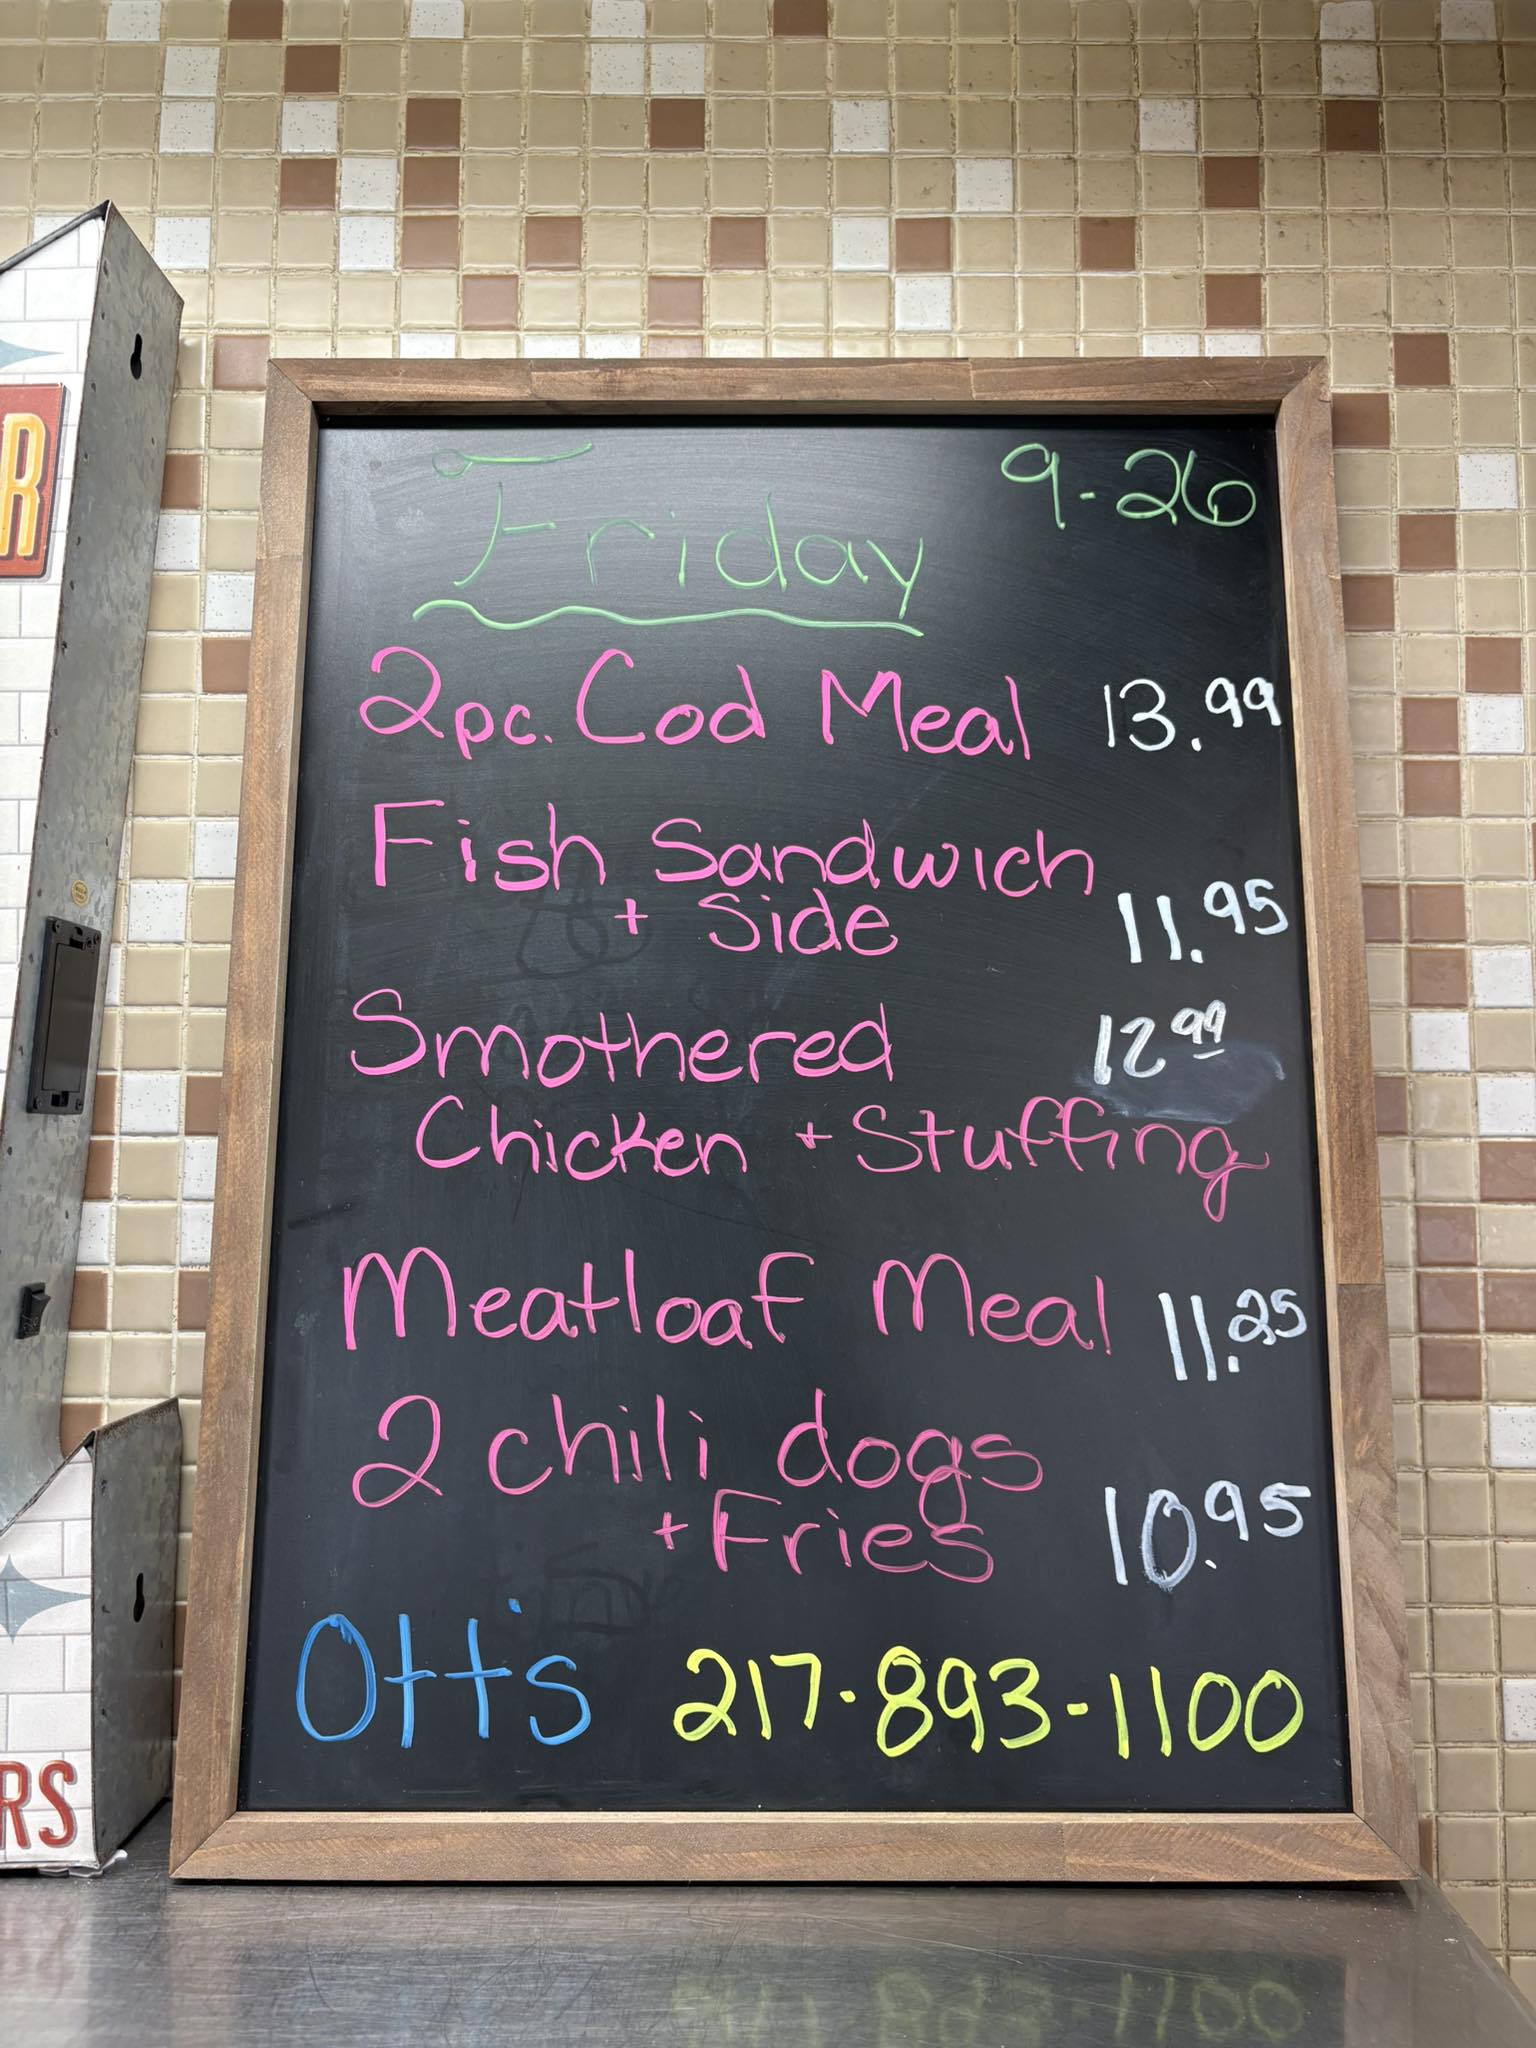 Friday 9-26
2pc. Cod Meal 13.99
Fish Sandwich
+ Side 11.95
Smothered 12 99
Chicken + Stuffing
Meatloaf Meal 11.25
2 chili dogs
+ Fries 10.95
Ott's 217-893-1100
R
RS